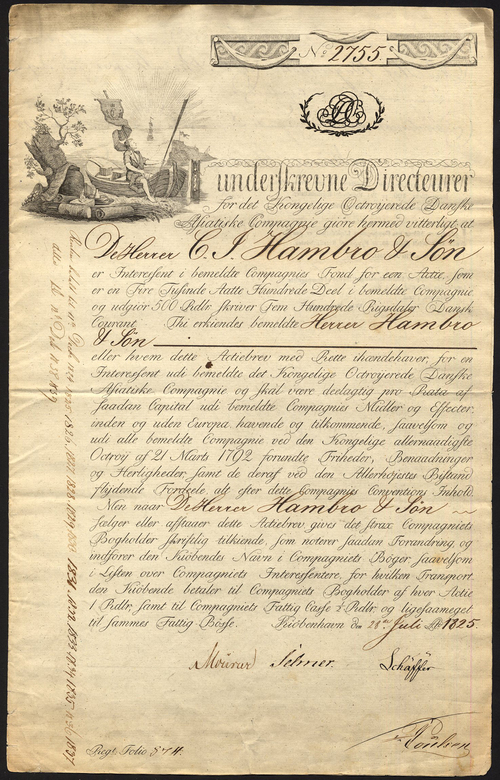 No 2755
underskrevne Directeurer
for det Kongelige Octroyerede Danske
Asiatiske Compagnie giöre hermed vitterligt at
De Herrer C. J. Hambro & Sön
er Interesent i bemeldte Compagnies Fond for een Actie, som
er en Fire Tusinde Aatte Hundrede Deel i bemeldte Compagnie
og udgiör 500 Rdlr. skriver Fem Hundrede Rigsdaler Dansk
Courant. Thi erkiendes bemeldte Herrer Hambro
& Sön
eller hvem dette Actiebrev med Rette ihændehaver, for en
Interesent udi bemeldte det Kongelige Octroyerede Danske
Asiatiske Compagnie og skal være deelagtig pro Rata af
saadan Capital udi bemeldte Compagnies Midler og Effecter,
inden og uden Europa havende og tilkommende, saavelsom og
udi alle bemeldte Compagnie ved den Kongelige allernaadigste
Octroj af 21 Marts 1792 forundte Friheder, Benaadninger
og Herligheder, samt de deraf ved den Allerhöjestes Bistand
flydende Fordeele alt efter dette Compagnies Conventions Inhold.
Men naar De Herrer Hambro & Sön
sælger eller afstaaer dette Actiebrev, gives det strax Compagniets
Bogholder skriftlig tilkiende, som noterer saadan Forandring, og
indförer den Kiöbendes Navn i Compagniets Böger, saavelsom
i Listen over Compagniets Interesentere, for hvilken Transport,
den Kiöbende betaler til Compagniets Bogholder af hver Actie
1 Rdlr. samt til Compagniets Fattig Casse 2 Rdlr. og ligesaameget
til sammes Fattig Bösse. Kiöbenhavn den 28de Juli Ao 1825.
Mourier Selmer. Schäffer
Poulsen
Regl. Folio 574.